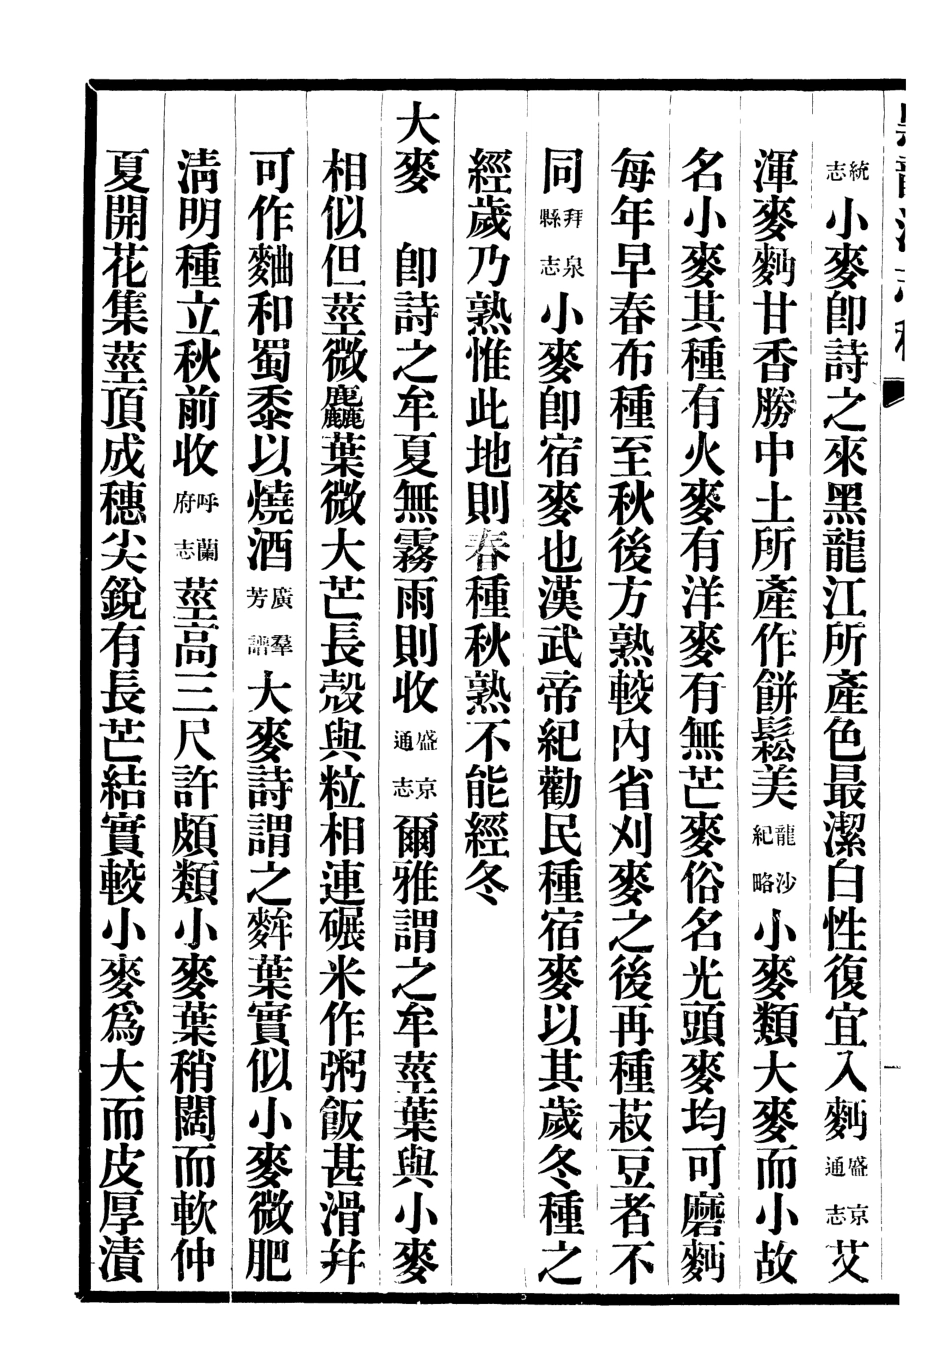 黑龍江志稿
統志小麥卽詩之來黑龍江所產色最潔白性復宜入麪盛京通志艾
渾麥麪甘香勝中土所產作餅鬆美龍沙紀略小麥類大麥而小故
名小麥其種有火麥有洋麥有無芒麥俗名光頭麥均可磨麪
每年早春布種至秋後方熟較內省刈麥之後再種菽豆者不
同拜泉縣志小麥卽宿麥也漢武帝紀勸民種宿麥以其歲冬種之
經歲乃熟惟此地則春種秋熟不能經冬
大麥　卽詩之牟夏無霧雨則收盛京通志爾雅謂之牟莖葉與小麥
相似但莖微麤葉微大芒長殼與粒相連碾米作粥飯甚滑幷
可作麯和蜀黍以燒酒廣羣芳譜大麥詩謂之麰葉實似小麥微肥
淸明種立秋前收呼蘭府志莖高三尺許頗類小麥葉稍闊而軟仲
夏開花集莖頂成穗尖銳有長芒結實較小麥爲大而皮厚漬